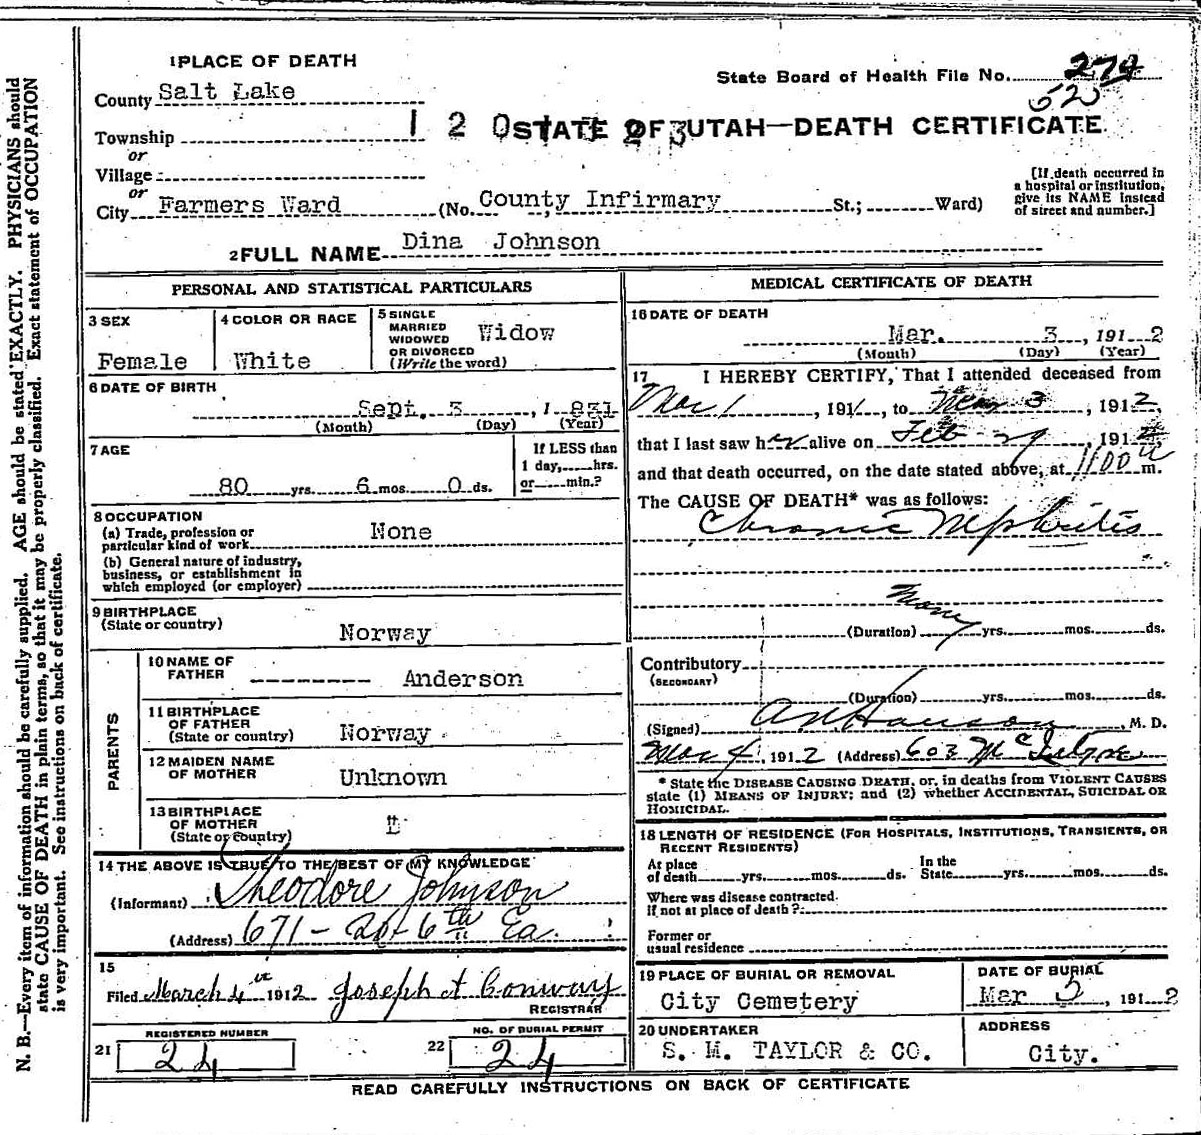 1 PLACE OF DEATH
County Salt Lake
State Board of Health File No. 274
52
Township
or
Village
or
City Farmers Ward (No. County Infirmary St.; Ward)
STATE OF UTAH—DEATH CERTIFICATE
[If death occurred in a hospital or institution, give its NAME instead of street and number.]
2 FULL NAME Dina Johnson
PERSONAL AND STATISTICAL PARTICULARS
3 SEX
Female
4 COLOR OR RACE
White
5 SINGLE
MARRIED
WIDOWED
OR DIVORCED
(Write the word)
Widow
6 DATE OF BIRTH
Sept. 3, 1 831
(Month) (Day) (Year)
7 AGE
80 yrs. 6 mos. 0 ds.
If LESS than
1 day, hrs.
or min.?
8 OCCUPATION
(a) Trade, profession or
particular kind of work None
(b) General nature of industry,
business, or establishment in
which employed (or employer)
9 BIRTHPLACE
(State or country)
Norway
PARENTS
10 NAME OF
FATHER Anderson
11 BIRTHPLACE
OF FATHER
(State or country) Norway
12 MAIDEN NAME
OF MOTHER Unknown
13 BIRTHPLACE
OF MOTHER
(State or country)
14 THE ABOVE IS TRUE TO THE BEST OF MY KNOWLEDGE
(Informant) Theodore Johnson
(Address) 671 - 6th Ea.
15
Filed March 4 1912 Joseph Conway
REGISTRAR
REGISTERED NUMBER
21 24
NO. OF BURIAL PERMIT
22 24
MEDICAL CERTIFICATE OF DEATH
16 DATE OF DEATH
Mar. 3, 191 2
(Month) (Day) (Year)
17 I HEREBY CERTIFY, That I attended deceased from
191 to Mar 3, 1912,
that I last saw her alive on Feb 29, 1912,
and that death occurred, on the date stated above, at 1100 m.
The CAUSE OF DEATH* was as follows:
Chronic Nephritis
Many
(Duration) yrs. mos. ds.
Contributory
(SECONDARY)
(Duration) yrs. mos. ds.
(Signed) Hanson, M. D.
Mar 4, 1912 (Address) 603
* State the DISEASE CAUSING DEATH, or, in deaths from VIOLENT CAUSES
state (1) MEANS OF INJURY; and (2) whether ACCIDENTAL, SUICIDAL OR
HOMICIDAL.
18 LENGTH OF RESIDENCE (FOR HOSPITALS, INSTITUTIONS, TRANSIENTS, OR
RECENT RESIDENTS)
At place
of death yrs. mos. ds.
In the
State yrs. mos. ds.
Where was disease contracted.
If not at place of death?
Former or
usual residence
19 PLACE OF BURIAL OR REMOVAL
City Cemetery
DATE OF BURIAL
Mar 5, 191 2
20 UNDERTAKER
S. M. TAYLOR & CO.
ADDRESS
City.
READ CAREFULLY INSTRUCTIONS ON BACK OF CERTIFICATE
N. B.—Every item of information should be carefully supplied. AGE should be stated EXACTLY. PHYSICIANS should
state CAUSE OF DEATH in plain terms, so that it may be properly classified. Exact statement of OCCUPATION
is very important. See instructions on back of certificate.